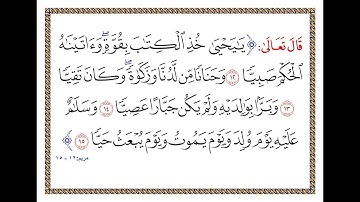 قَالَ تَعَالَىٰ: ﴿ يَـٰيَحْيَىٰ خُذِ ٱلْكِتَـٰبَ بِقُوَّةٍ ۖ وَءَاتَيْنَـٰهُ
ٱلْحُكْمَ صَبِيًّا ١٢ وَحَنَانًا مِّن لَّدُنَّا وَزَكَوٰةً ۖ وَكَانَ تَقِيًّا
١٣ وَبَرًّۢا بِوَٰلِدَيْهِ وَلَمْ يَكُن جَبَّارًا عَصِيًّا ١٤ وَسَلَـٰمٌ
عَلَيْهِ يَوْمَ وُلِدَ وَيَوْمَ يَمُوتُ وَيَوْمَ يُبْعَثُ حَيًّا ١٥ ﴾
مريم: ١٢ - ١٥